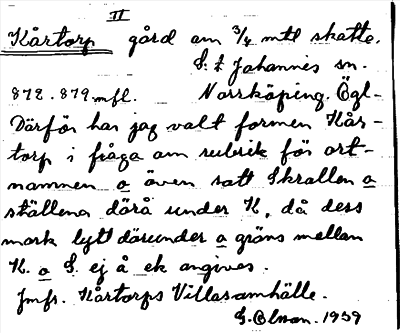 II
Kårtorp gård om 3/4 mtl skatte.
S:t Johannis sn.
878.879 mfl. Norrköping. Ögl-
Därför har jag valt formen Kår-
torp i fråga om rubrik för ort-
namnen o även satt Skrallen o
ställena därå under K, då dess
mark lytt därunder o gräns mellan
K. o S. ej å ek angives.
Jmfr. Kårtorps Villasamhälle.
G. Olson. 1939